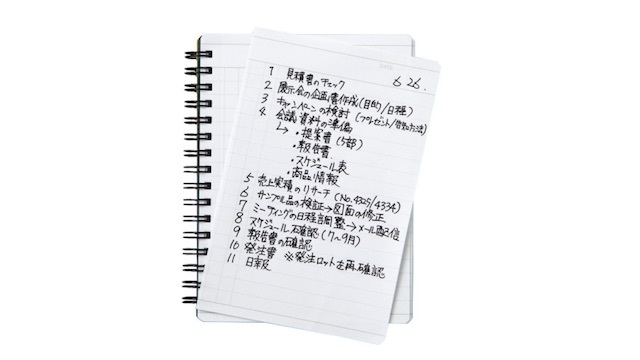 6 26.
1 見積書のチェック
2 展示会の企画書作成(目的/日程)
3 キャンペーンの検討 (プレゼント/告知方法)
4 会議資料の準備
↳ ・提案書 (5部)
・報告書
・スケジュール表
・商品情報
5 売上実績のリサーチ (No.4325/4334)
6 サンプル品の検証→図面の修正
7 ミーティングの日程調整→メール配信
8 スケジュール確認 (7〜9月)
9 報告書の確認
10 発注書 ※発注ロットを再確認
11 日報